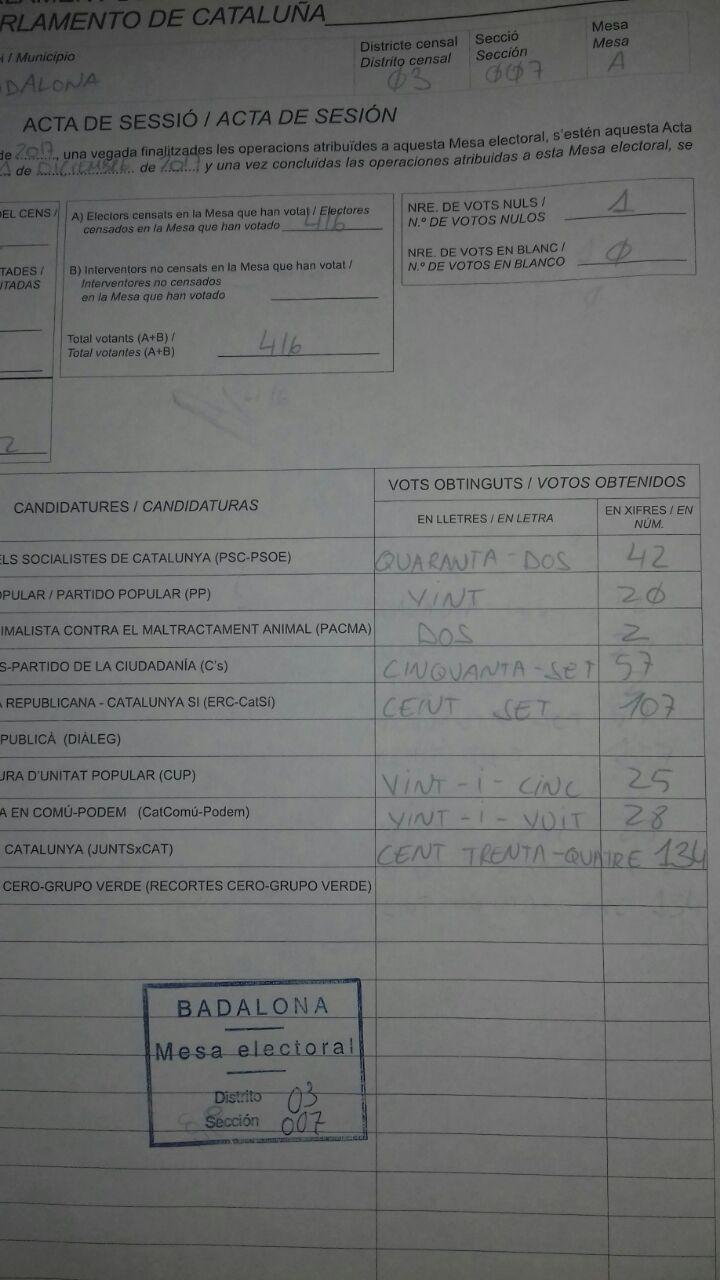 PARLAMENTO DE CATALUÑA
/ Municipio
BADALONA
Districte censal
Distrito censal
03
Secció
Sección
007
Mesa
Mesa
A
ACTA DE SESSIÓ / ACTA DE SESIÓN
de 2017, una vegada finalitzades les operacions atribuïdes a aquesta Mesa electoral, s'estén aquesta Acta
de DICIEMBRE de 2017 y una vez concluidas las operaciones atribuidas a esta Mesa electoral, se
DEL CENS /
TADES /
ITADAS
2
A) Electors censats en la Mesa que han votat / Electores
censados en la Mesa que han votado 416
B) Interventors no censats en la Mesa que han votat /
Interventores no censados
en la Mesa que han votado
Total votants (A+B) /
Total votantes (A+B) 416
NRE. DE VOTS NULS /
N.º DE VOTOS NULOS 1
NRE. DE VOTS EN BLANC /
N.º DE VOTOS EN BLANCO 0
CANDIDATURES / CANDIDATURAS
VOTS OBTINGUTS / VOTOS OBTENIDOS
EN LLETRES / EN LETRA
EN XIFRES / EN
NÚM.
ELS SOCIALISTES DE CATALUNYA (PSC-PSOE) QUARANTA-DOS 42
OPULAR / PARTIDO POPULAR (PP) VINT 20
IMALISTA CONTRA EL MALTRACTAMENT ANIMAL (PACMA) DOS 2
S-PARTIDO DE LA CIUDADANÍA (C's) CINQUANTA-SET 57
A REPUBLICANA - CATALUNYA SI (ERC-CatSí) CENT SET 107
PUBLICÀ (DIÀLEG)
URA D'UNITAT POPULAR (CUP) VINT-i-CINC 25
A EN COMÚ-PODEM (CatComú-Podem) VINT-i-VUIT 28
CATALUNYA (JUNTSxCAT) CENT TRENTA-QUATRE 134
CERO-GRUPO VERDE (RECORTES CERO-GRUPO VERDE)
BADALONA
Mesa electoral
Distrito 03
Sección 007